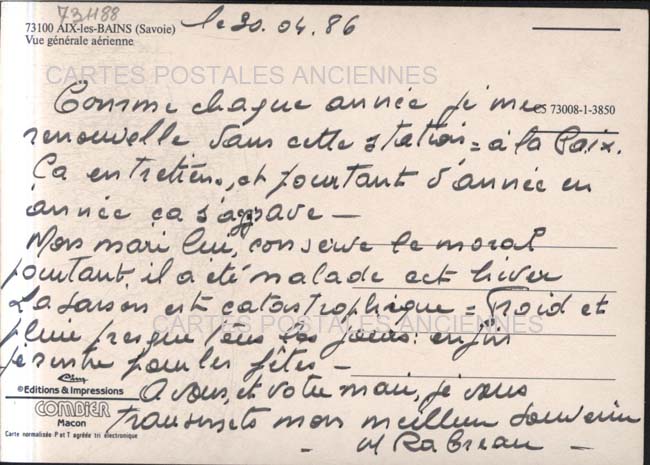 731188
73100 AIX-les-BAINS (Savoie)
Vue générale aérienne
le 20.04.86
CARTES POSTALES ANCIENNES
CS 73008-1-3850
Comme chaque année je me
renouvelle dans cette station = à la Paix.
Ca entretien, et pourtant d'année en
année ça s'aggrave —
Mon mari lui, conserve le moral
pourtant il a été malade cet hiver
La saison est catastrophique = Froid et
pluie presque tous les jours. enfin
CARTES POSTALES ANCIENNES
je rentre pour les fêtes —
A vous, et votre mari, je vous
transmets mon meilleur souvenir
M Rabreau —
©Editions & Impressions
COMBIER
Macon
Carte normalisée P et T agréée tri électronique